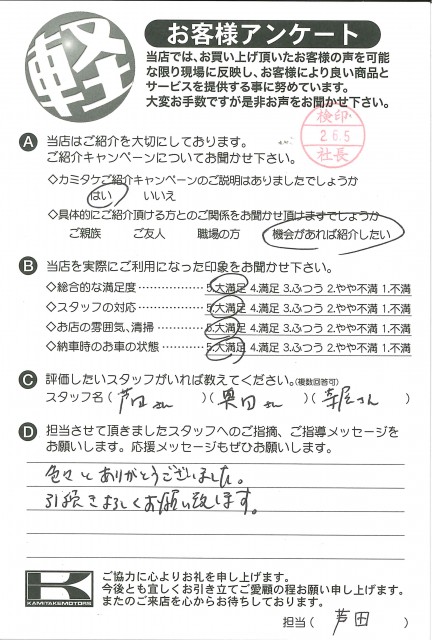 軽
お客様アンケート
当店では、お買い上げ頂いたお客様の声を可能
な限り現場に反映し、お客様により良い商品と
サービスを提供する事に努めています。
大変お手数ですが是非お声をお聞かせ下さい。
検印
2.6.5
社長
A 当店はご紹介を大切にしております。
ご紹介キャンペーンについてお聞かせ下さい。
◇カミタケご紹介キャンペーンのご説明はありましたでしょうか
はい いいえ
◇具体的にご紹介頂ける方とのご関係をお聞かせ頂けますでしょうか
ご親族 ご友人 職場の方 機会があれば紹介したい
B 当店を実際にご利用になった印象をお聞かせ下さい。
◇総合的な満足度 5.大満足 4.満足 3.ふつう 2.やや不満 1.不満
◇スタッフの対応 5.大満足 4.満足 3.ふつう 2.やや不満 1.不満
◇お店の雰囲気、清掃 5.大満足 4.満足 3.ふつう 2.やや不満 1.不満
◇納車時のお車の状態 5.大満足 4.満足 3.ふつう 2.やや不満 1.不満
C 評価したいスタッフがいれば教えてください。(複数回答可)
スタッフ名(芦田さん)(奥田さん)(寺尾さん)
D 担当させて頂きましたスタッフへのご指摘、ご指導メッセージを
お願いします。応援メッセージもぜひお願いします。
色々とありがとうございました。
引続きよろしくお願い致します。
K
KAMITAKEMOTORS
ご協力に心よりお礼を申し上げます。
今後とも宜しくお引き立てご愛顧の程お願い申し上げます。
またのご来店を心からお待ちしております。
担当(芦田)